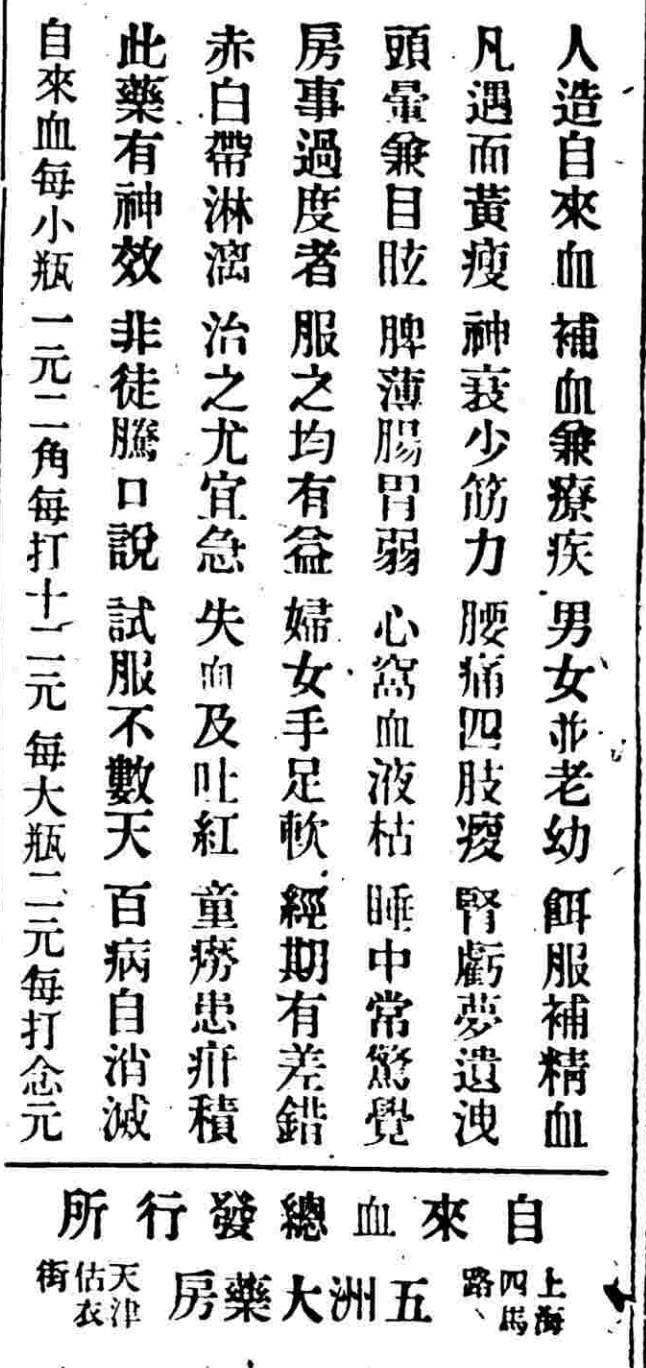 人造自來血 補血兼療疾 男女並老幼 餌服補精血
凡遇面黃瘦 神衰少筋力 腰痛四肢痠 腎虧夢遺洩
頭暈兼目眩 脾薄腸胃弱 心窩血液枯 睡中常驚覺
房事過度者 服之均有益 婦女手足軟 經期有差錯
赤白帶淋漓 治之尤宜急 失血及吐紅 童癆患疳積
此藥有神效 非徒騰口說 試服不數天 百病自消滅
自來血每小瓶一元二角每打十二元 每大瓶二元每打念元
自來血總發行所
上海四馬路 五洲大藥房 天津估衣街